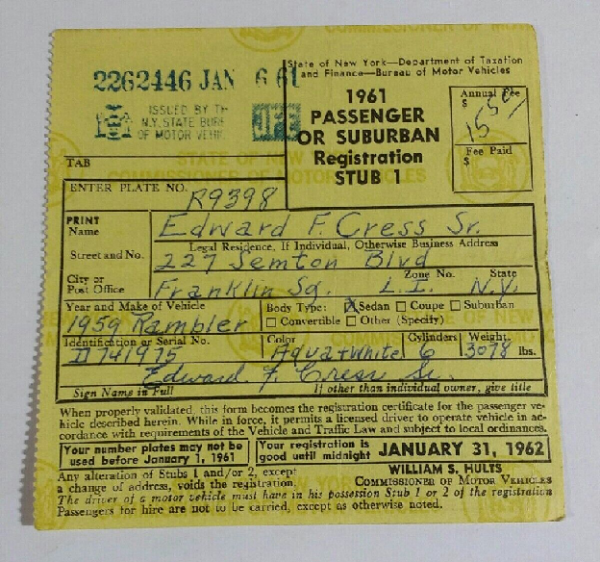 2262446 JAN 6 61
ISSUED BY TH
N.Y. STATE BURE
OF MOTOR VEHI
State of New York—Department of Taxation
and Finance—Bureau of Motor Vehicles
1961
PASSENGER
OR SUBURBAN
Registration
STUB 1
Annual Fee
$ 15 50
Fee Paid
$
TAB
STATE OF NEW
COMMISSIONER OF MOTOR VEHICLES
ENTER PLATE NO. R9398
PRINT
Name Edward F. Cress Sr.
Legal Residence, If Individual, Otherwise Business Address
Street and No. 227 Semton Blvd
City or Zone No. State
Post Office Franklin Sq. L.I. N.Y.
Year and Make of Vehicle Body Type: X Sedan Coupe Suburban
1959 Rambler Convertible Other (Specify)
Identification or Serial No. Color Cylinders Weight
D741975 Aqua + White 6 3078 lbs.
Edward F Cress Sr.
Sign Name in Full If other than individual owner, give title
When properly validated, this form becomes the registration certificate for the passenger ve-
hicle described herein. While in force, it permits a licensed driver to operate vehicle in ac-
cordance with requirements of the Vehicle and Traffic Law and subject to local ordinances.
Your number plates may not be
used before January 1, 1961
Your registration is
good until midnight JANUARY 31, 1962
Any alteration of Stubs 1 and/or 2, except
a change of address, voids the registration.
WILLIAM S. HULTS
COMMISSIONER OF MOTOR VEHICLES
The driver of a motor vehicle must have in his possession Stub 1 or 2 of the registration
Passengers for hire are not to be carried, except as otherwise noted.